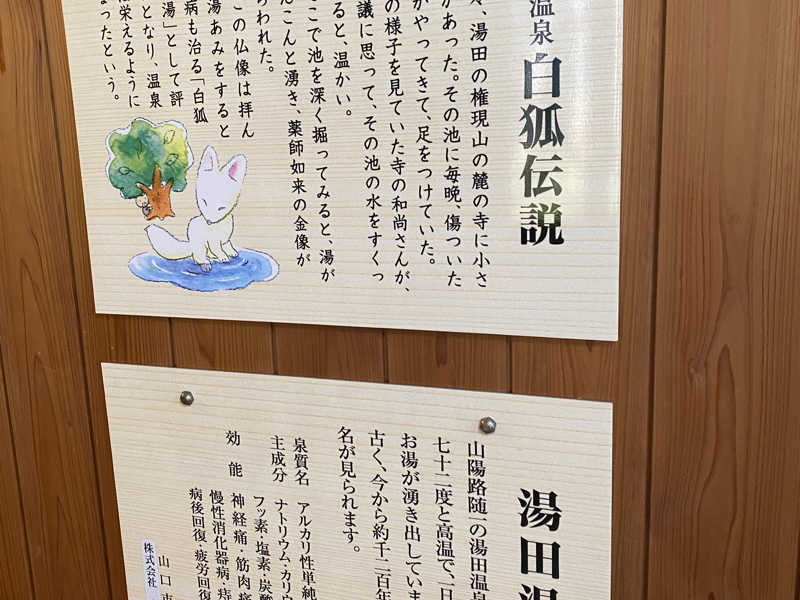 温泉 白狐伝説
、湯田の権現山の麓の寺に小さ
があった。その池に毎晩、傷ついた
がやってきて、足をつけていた。
の様子を見ていた寺の和尚さんが、
議に思って、その池の水をすくっ
ると、温かい。
こで池を深く掘ってみると、湯が
んこんと湧き、薬師如来の金像が
らわれた。
この仏像は拝ん
湯あみをすると
病も治る「白狐
湯」として評
となり、温泉
栄えるように
ったという。
湯田温
山陽路随一の湯田温泉
七十二度と高温で、一日
お湯が湧き出していま
古く、今から約千二百年
名が見られます。
泉質名 アルカリ性単純
主成分 ナトリウム・カリウ
フッ素・塩素・炭酸
効能 神経痛・筋肉痛
慢性消化器病・痔
病後回復・疲労回復
山口市
株式会社